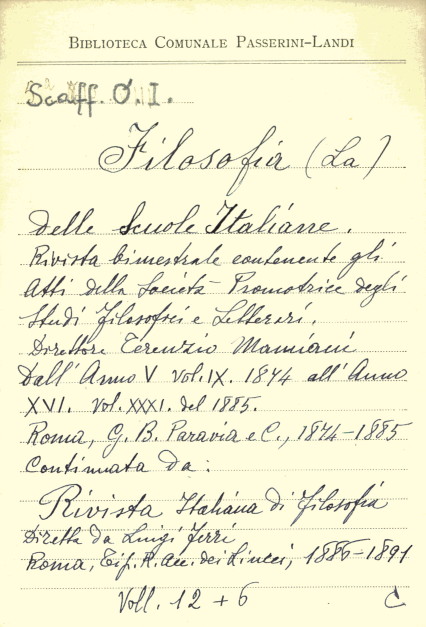 BIBLIOTECA COMUNALE PASSERINI-LANDI
Scaff. O. I.
Filosofia (La)
delle Scuole Italiane.
Rivista bimestrale contenente gli
Atti della Società Promotrice degli
Studi filosofici e Letterari.
Direttore Terenzio Mamiani
Dall' Anno V vol. IX. 1874 all' Anno
XVI. vol. XXXI. del 1885.
Roma, G. B. Paravia e C., 1874-1885
Continuata da:
Rivista Italiana di Filosofia
Diretta da Luigi Ferri
Roma, Tip. R. Acc. dei Lincei, 1886-1891
Voll. 12 + 6 C